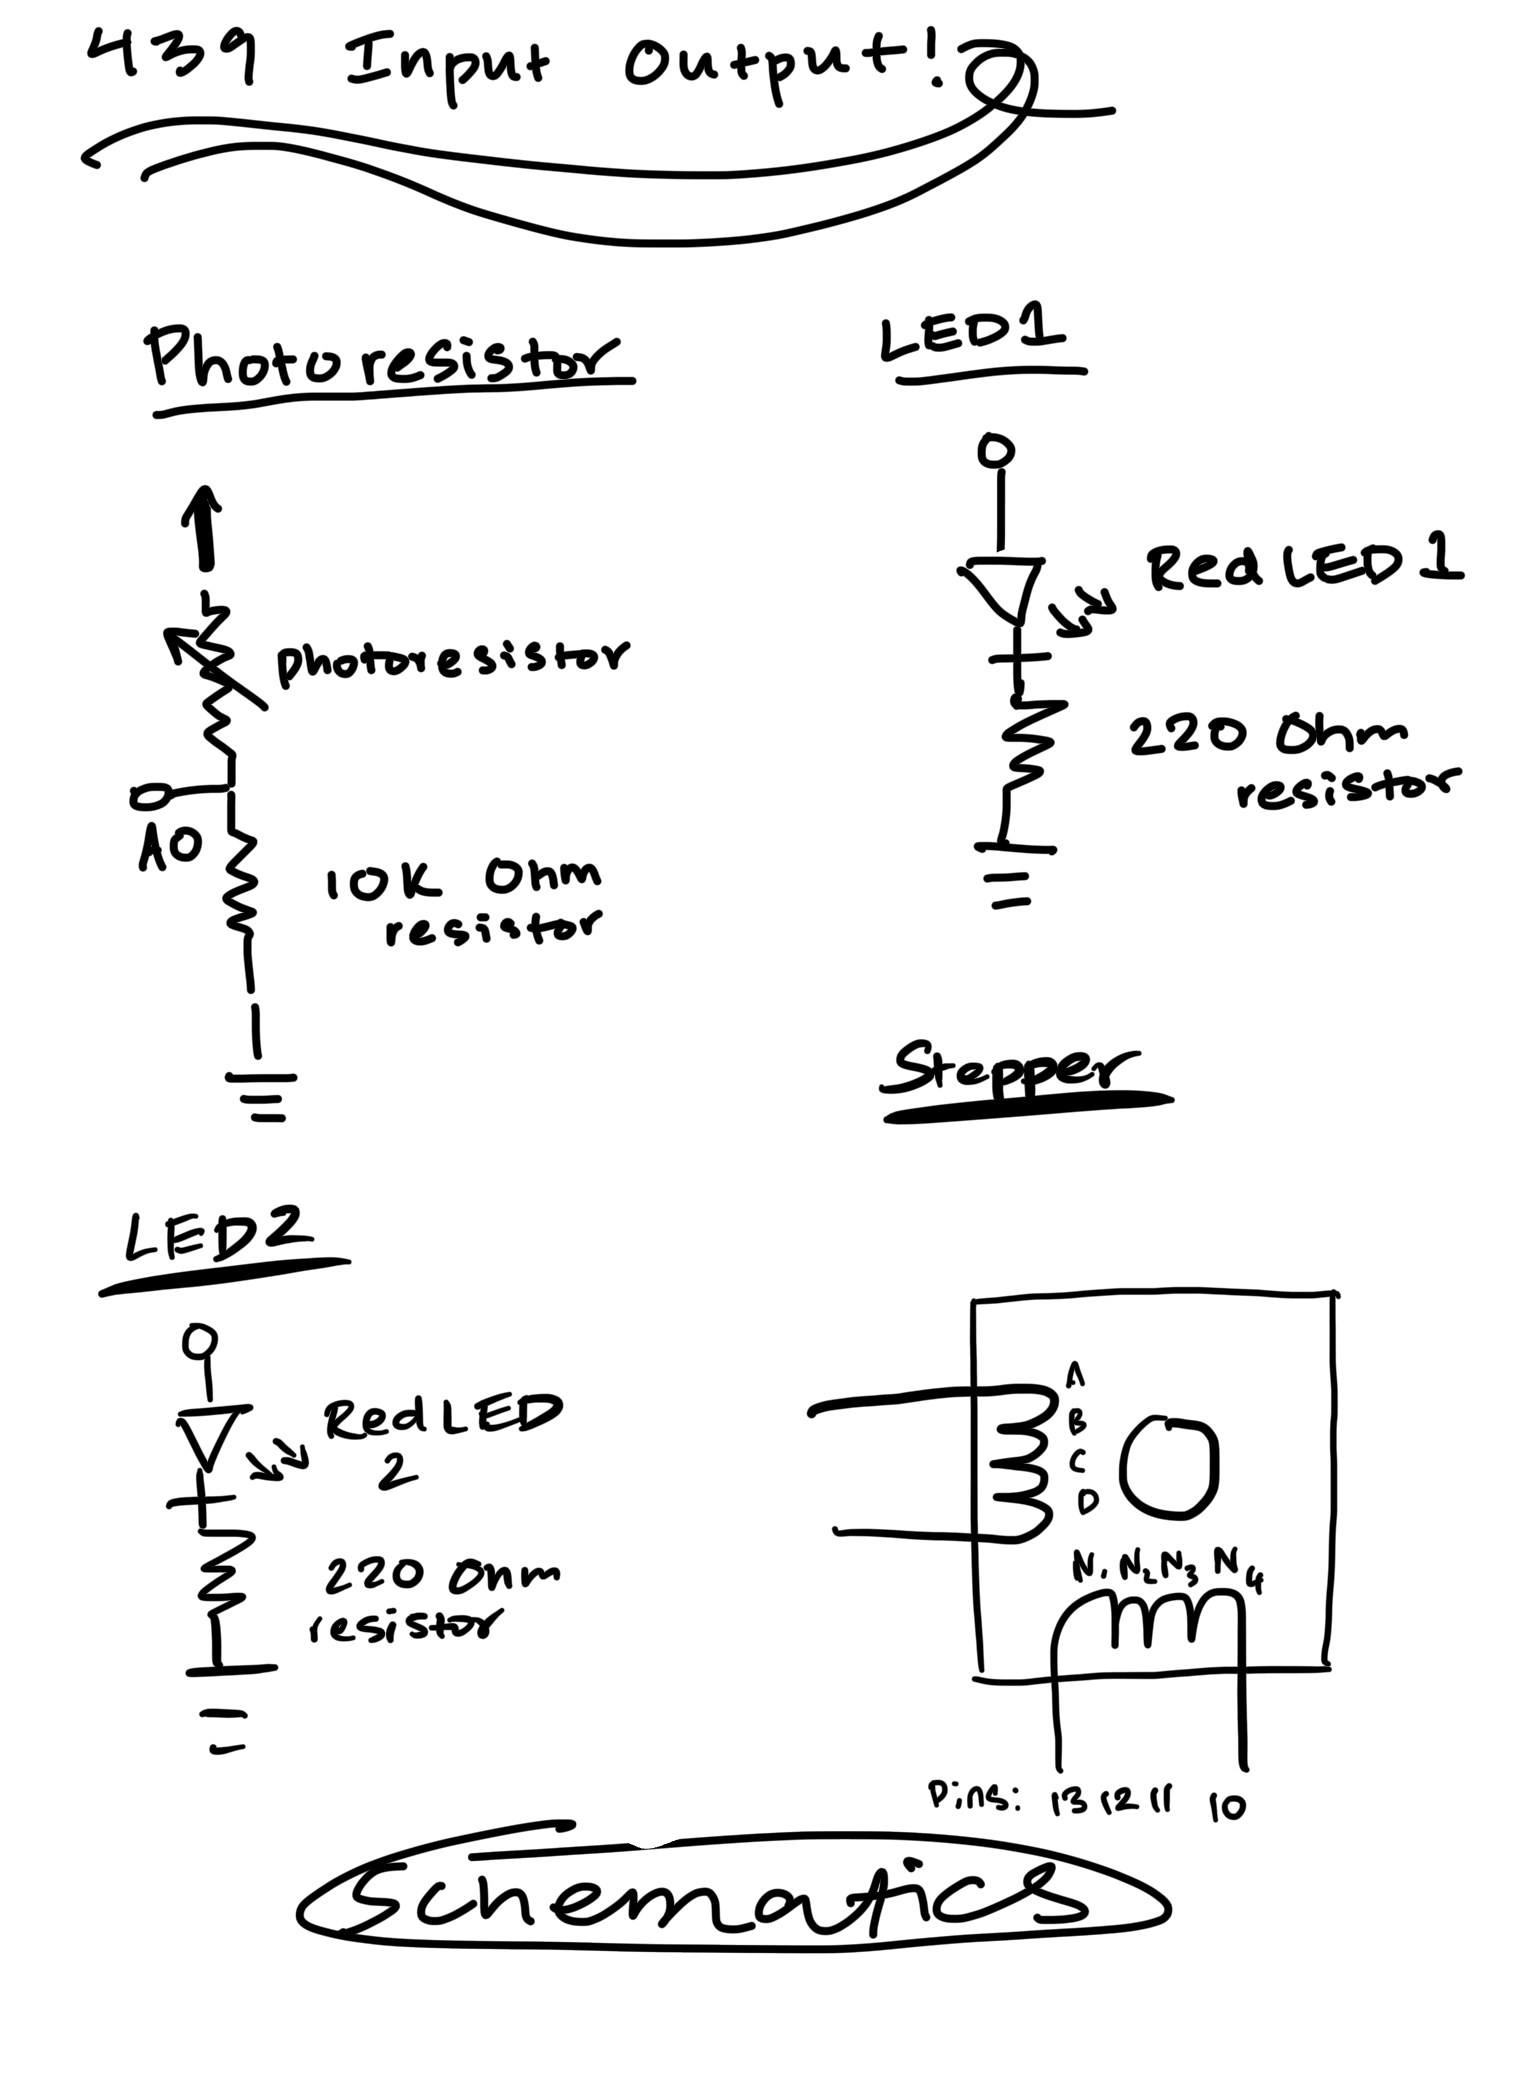 439 Input Output!
Photoresistor
photoresistor
A0
10K Ohm
resistor
LED1
Red LED 1
220 Ohm
resistor
LED2
Red LED
2
220 Ohm
resistor
Stepper
A
B
C
D
N1 N2 N3 N4
Pins: 13 12 11 10
Schematics